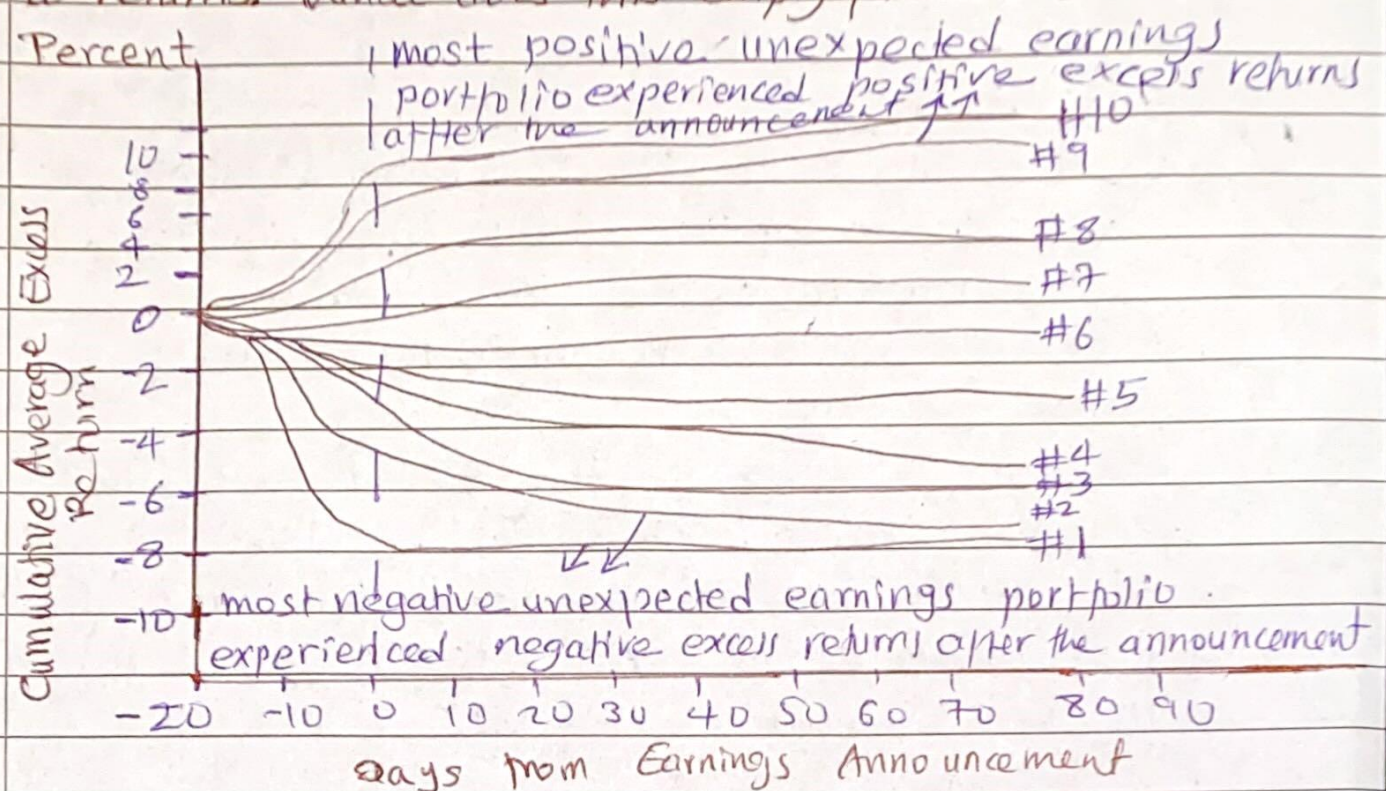 Percent
most positive unexpected earnings
portfolio experienced positive excess returns
after the announcement
#10
10
#9
8
6
4
#8
2
#7
0
#6
-2
#5
-4
#4
#3
-6
#2
#1
-8
Cumulative Average Excess
Return
most negative unexpected earnings portfolio
-10
experienced negative excess returns after the announcement
-20 -10 0 10 20 30 40 50 60 70 80 90
Days from Earnings Announcement